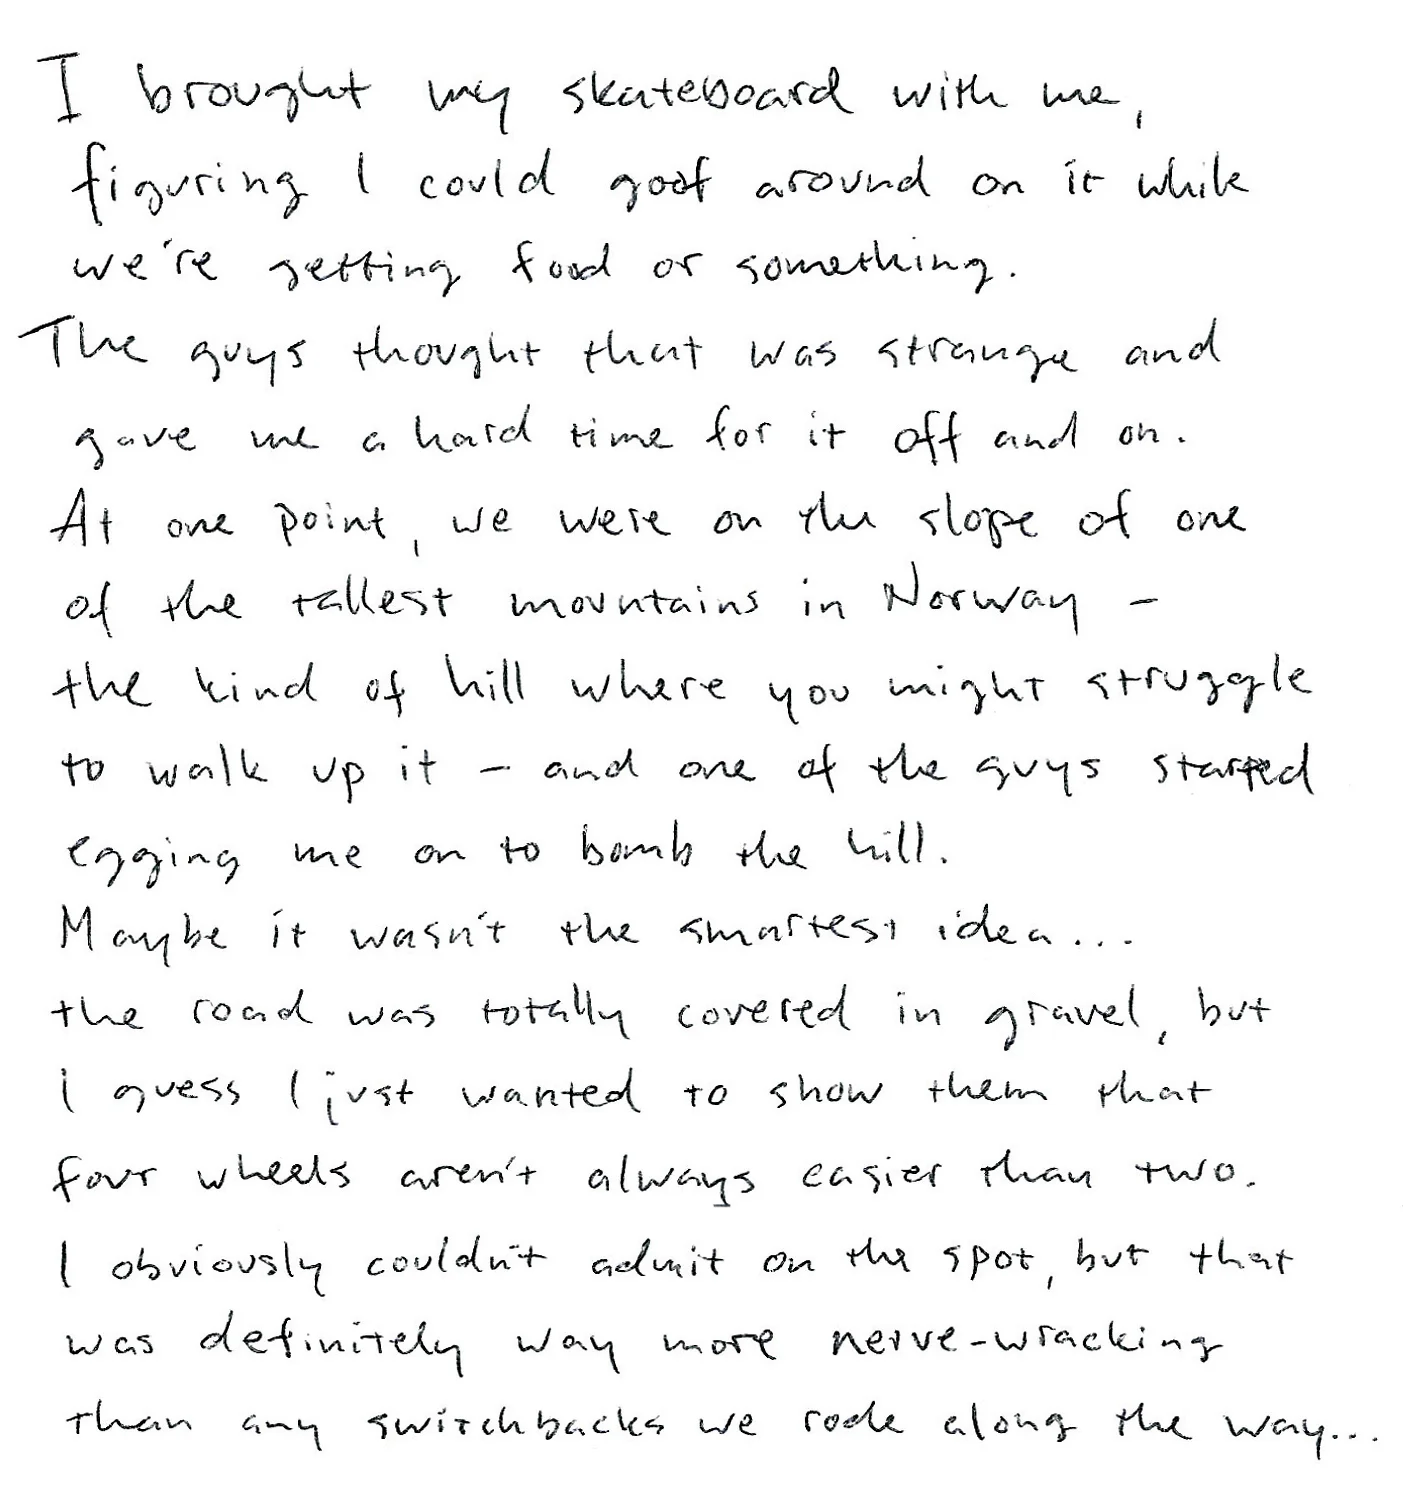 I brought my skateboard with me,
figuring I could goof around on it while
we're getting food or something.
The guys thought that was strange and
gave me a hard time for it off and on.
At one point, we were on the slope of one
of the tallest mountains in Norway –
the kind of hill where you might struggle
to walk up it – and one of the guys started
egging me on to bomb the hill.
Maybe it wasn't the smartest idea...
the road was totally covered in gravel, but
I guess I just wanted to show them that
four wheels aren't always easier than two.
I obviously couldn't admit on the spot, but that
was definitely way more nerve-wracking
than any switchbacks we rode along the way...